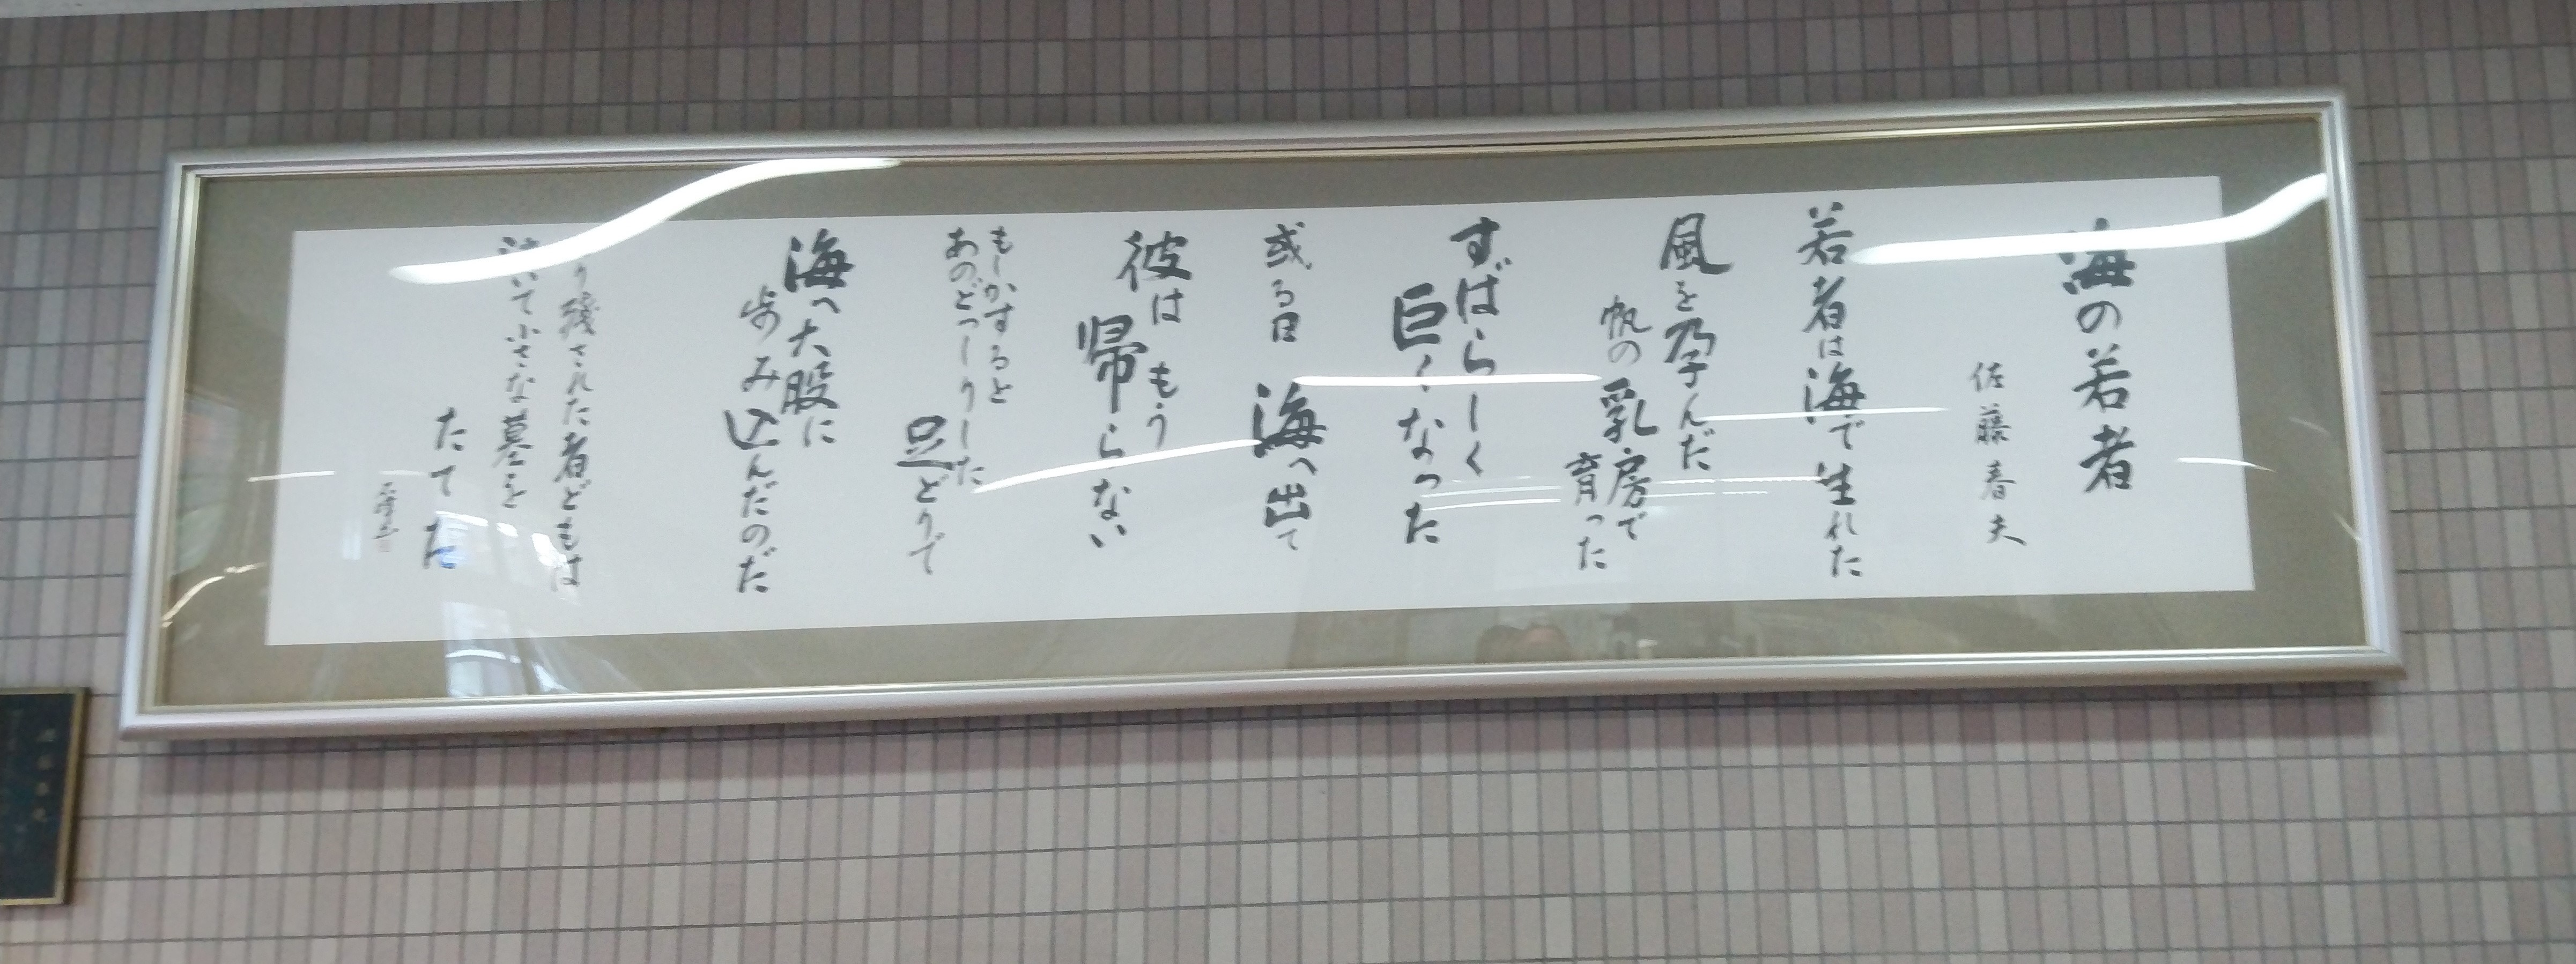 海の若者
佐藤春夫
若者は海で生れた
風を孕んだ
帆の乳房で
育った
すばらしく
巨くなった
或る日 海へ出て
彼は もう
帰らない
もしかすると
あのどっしりした
足どりで
海へ大股に
歩み込んだのだ
り残された者どもは
泣いて小さな墓を
たてた